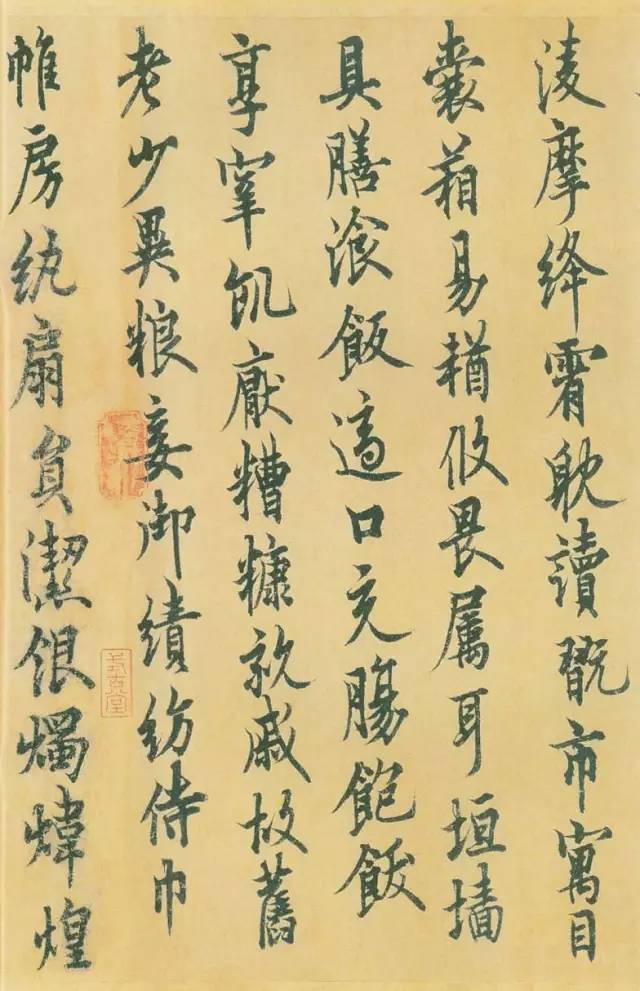 淩摩絳霄躭讀翫市寓目
囊箱易輶攸畏屬耳垣墻
具膳飡飯適口充腸飽飫
享宰飢厭糟糠親戚故舊
老少異粮妾御績紡侍巾
帷房紈扇員潔銀燭煒煌